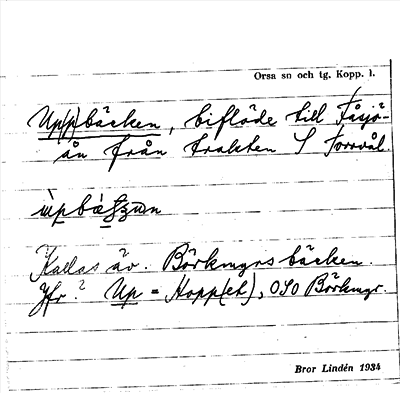 Orsa sn och tg. Kopp. l.
Up(p)bäcken, biflöde till Fåsjö-
ån från trakten S Torrvål.
Kallas äv. Börkmyrsbäcken.
Jfr. ? Up = Hopp(et), OSO Börkmyr.
Bror Lindén 1934